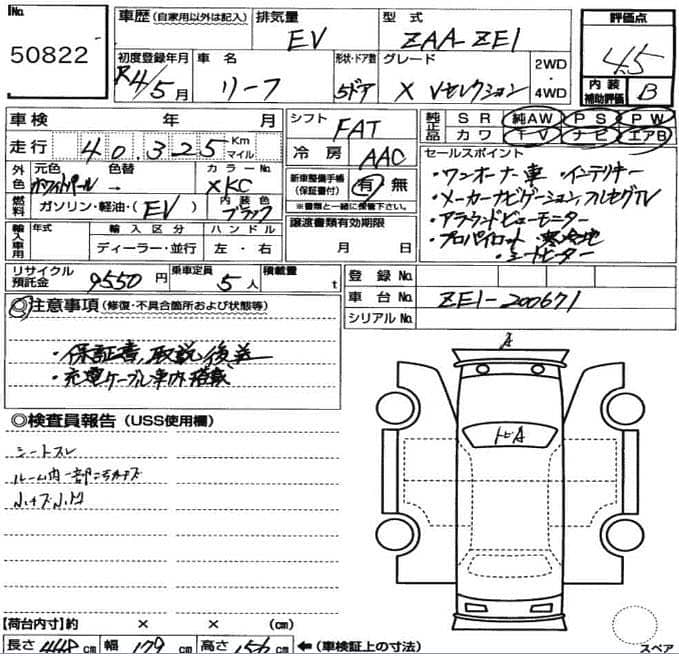 No. 50822
車歴 (自家用以外は記入)
排気量 EV
型式 ZAA-ZE1
評価点 4.5
内装補助評価 B
初度登録年月 R4/5月
車名 リーフ
形状・ドア数 5ドア
グレード X Vセレクション
2WD・4WD
車検 年 月
シフト FAT
純正品 SR 純AW PS PW
カワ TV ナビ エアB
走行 40,325 Km マイル
冷房 AAC
セールスポイント
・ワンオーナー車 ・インテリキー
・メーカーナビゲーション,フルセグTV
・アラウンドビューモニター
・プロパイロット ・寒冷地
・シートヒーター
外色 元色 ホワイトパール 色替 →
カラーNo. XKC
新車整備手帳(保証書付) 有 無
※書類と一緒に保管下さい。
燃料 ガソリン・軽油・(EV)
内装色 ブラック
譲渡書類有効期限
月 日
輸入車用 年式 輸入区分 ハンドル
ディーラー・並行 左・右
リサイクル預託金 9550円
乗車定員 5人
積載量 t
登録No.
車台No. ZE1-200671
シリアルNo.
◎注意事項 (修復・不具合箇所および状態等)
・保証書,取説後差
・充電ケーブル車内搭載
◎検査員報告 (USS使用欄)
シートスレ
ルーム内一部コゲキズ
小キズ小凹
A
トビA
【荷台内寸】約 × × (cm)
長さ 448cm 幅 179cm 高さ 156cm ←(車検証上の寸法)
スペア